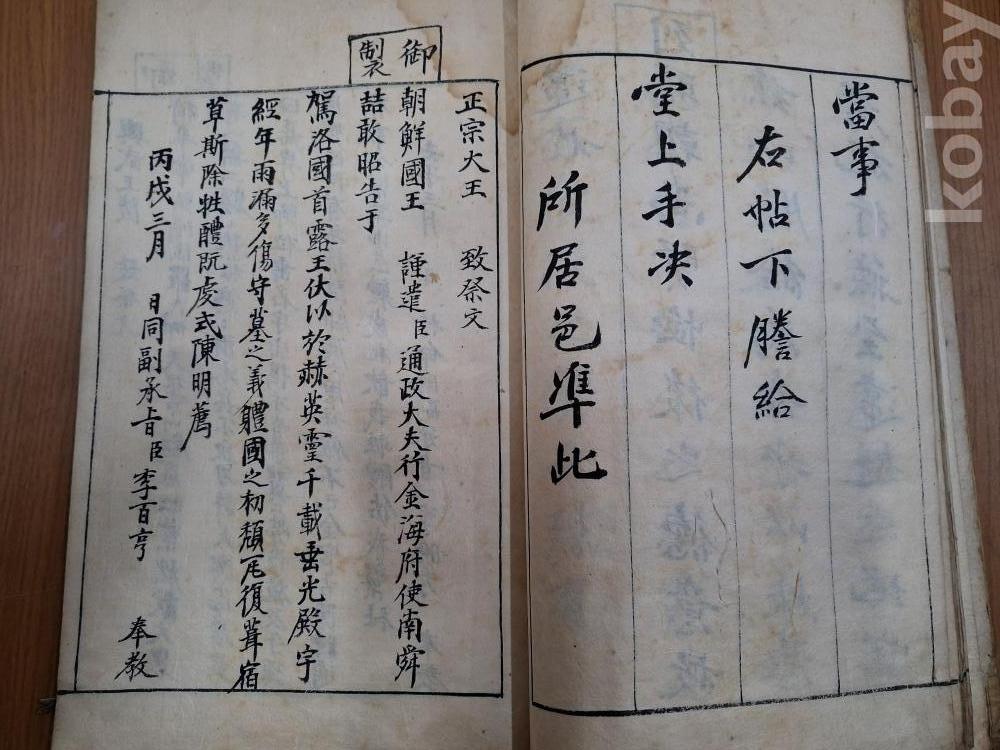 當事
右帖下謄給
堂上手决
所居邑準此
御製
正宗大王 致祭文
朝鮮國王 謹遣臣通政大夫行金海府使南舜
喆敢昭告于
駕洛國首露王伏以於赫英靈千載垂光殿宇
經年雨漏多傷守墓之義體國之初頹瓦復葺宿
草斯除牲醴旣虔式陳明薦
丙戌三月 日同副承旨臣李百亨 奉教
kobay